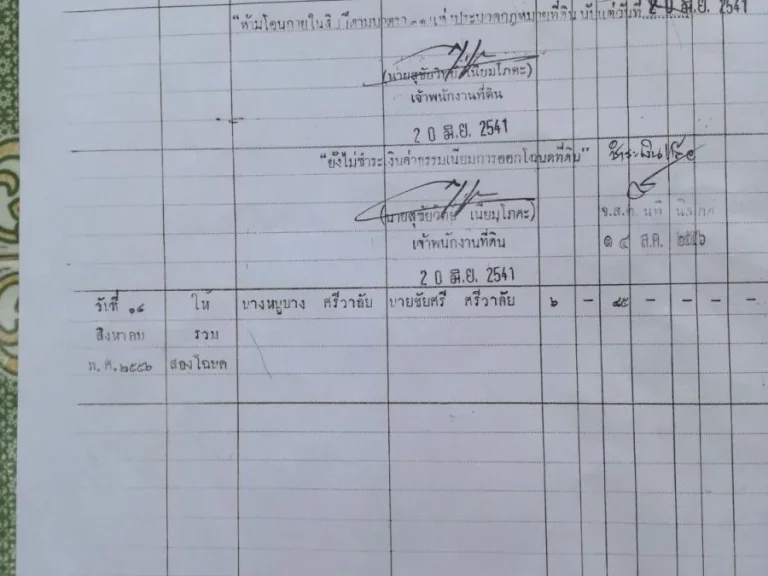 "ห้ามโอนภายในสิบปีตามมาตรา ๓๑ แห่งประมวลกฎหมายที่ดิน นับแต่วันที่ 2 0 มิ.ย. 2541
(นายสุชัยวิทย์ เนียมโภคะ)
เจ้าพนักงานที่ดิน
2 0 มิ.ย. 2541
"ยังไม่ชำระเงินค่าธรรมเนียมการออกโฉนดที่ดิน" ชำระเงินแล้ว
(นายสุชัยวิทย์ เนียมโภคะ) จ.ส.ต. นที
เจ้าพนักงานที่ดิน ๑ ๔ ส.ค. ๒๕๕๖
2 0 มิ.ย. 2541
วันที่ ๑๔ ให้ นางหนูบาง ศรีวาลัย นายชัยศรี ศรีวาลัย ๖ – ๘๕ – – – –
สิงหาคม รวม
พ.ศ.๒๕๕๖ สองโฉนด